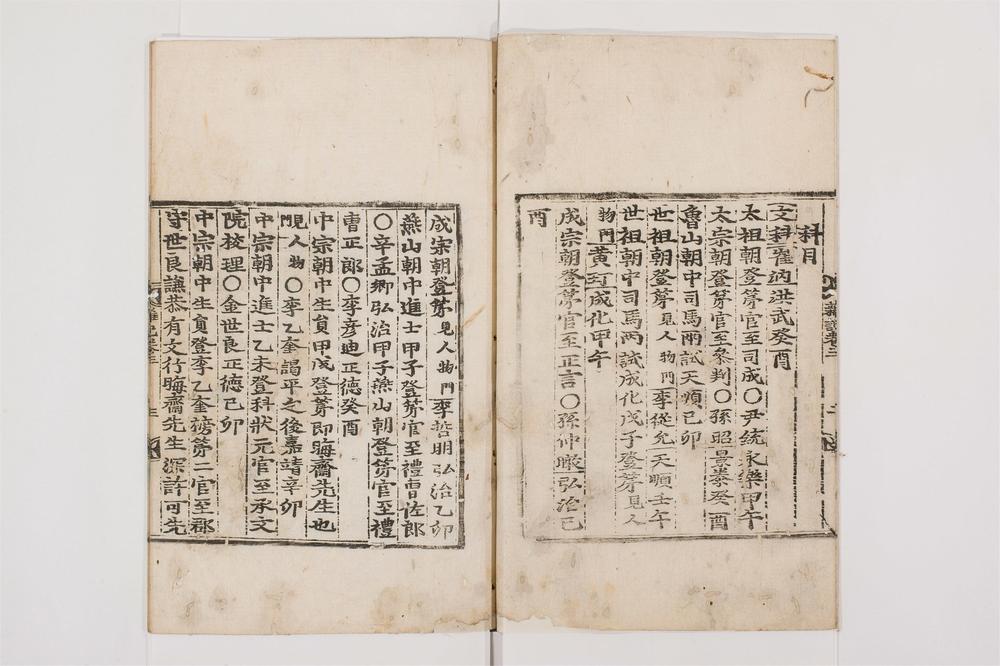 科目
文科崔汭洪武癸酉
太祖朝登第官至司成○尹統永樂甲午
太宗朝登第官至參判○孫昭景泰癸酉
魯山朝中司馬兩試天順己卯
世祖朝登第見人物門李從允天順壬午
世祖朝中司馬兩試成化戊子登第見人
物門黃玎成化甲午
成宗朝登第官至正言○孫仲暾弘治己
酉
成宗朝登第見人物門李哲明弘治乙卯
燕山朝中進士甲子登第官至禮曹佐郎
○辛孟卿弘治甲子燕山朝登第官至禮
曹正郎○李彦迪正德癸酉
中宗朝中生員甲戌登第即晦齋先生也
見人物門○李乙奎謁平之後嘉靖辛卯
中宗朝中進士乙未登科狀元官至承文
院校理○金世良正德己卯
中宗朝中生員登李乙奎榜第二官至郡
守世良謙恭有文行晦齋先生深許可先